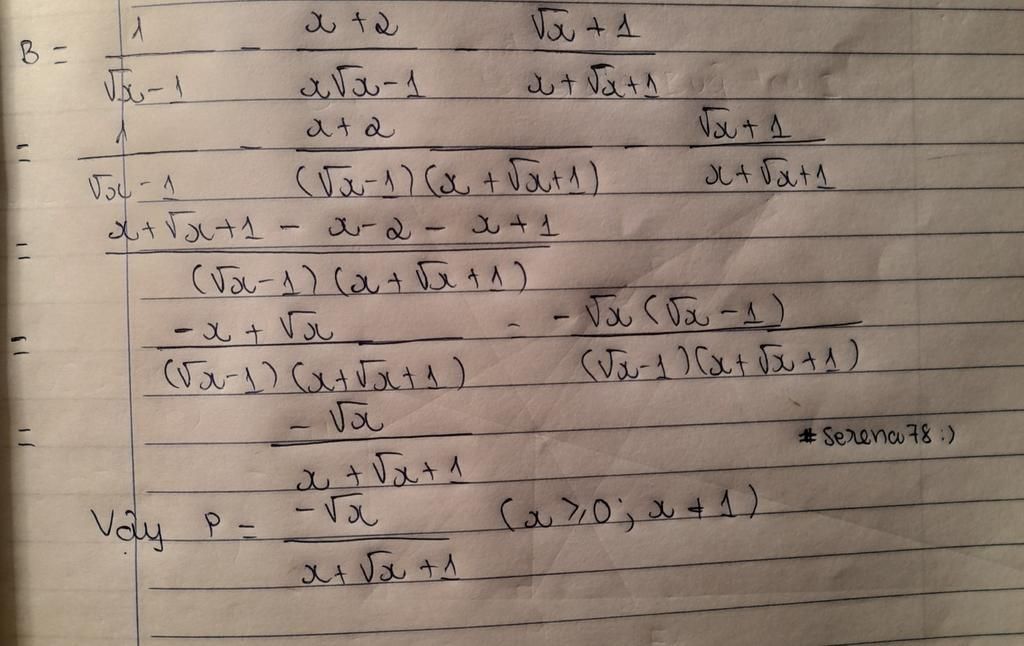 B = 1/(√x-1) - (x+2)/(x√x-1) - (√x+1)/(x+√x+1)
= 1/(√x-1) - (x+2)/((√x-1)(x+√x+1)) - (√x+1)/(x+√x+1)
= (x+√x+1 - x-2 - x+1)/((√x-1)(x+√x+1))
= (-x+√x)/((√x-1)(x+√x+1)) = (-√x(√x-1))/((√x-1)(x+√x+1))
= (-√x)/(x+√x+1)
#Serena78:)
Vậy P = (-√x)/(x+√x+1) (x ≥ 0; x ≠ 1)